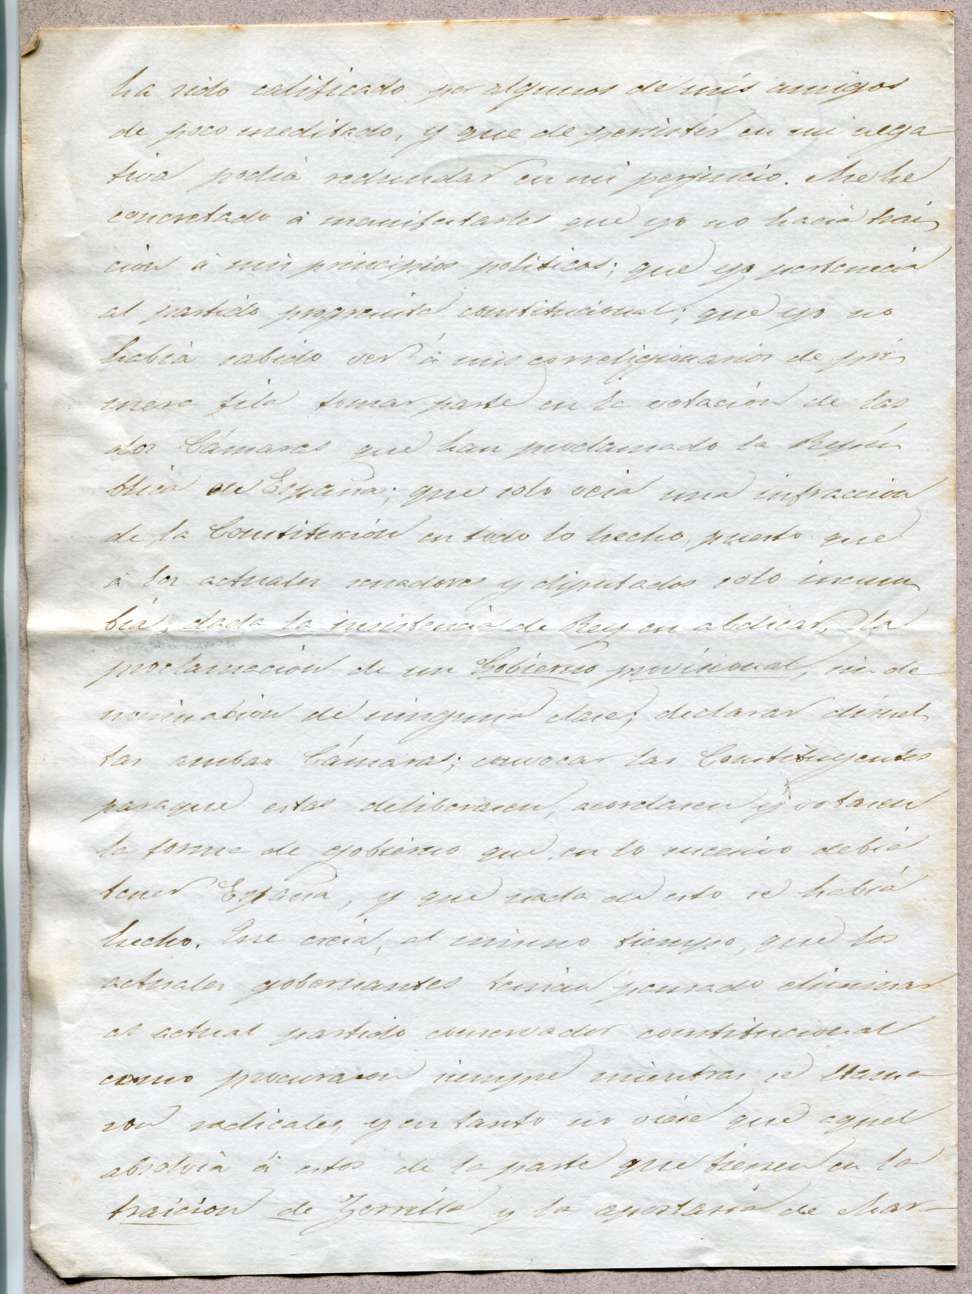 ha sido calificado por algunos de mis amigos
de poco meditado, y que de persistir en mi nega
tiva podia redundar en mi perjuicio. Me he
concretado á manifestarles que yo no hacia trai
cion á mis principios politicos; que yo pertenecia
al partido progresista constitucional; que yo no
habia sabido ver á mis correligionarios de pri
mera fila tomar parte en la votacion de las
dos Cámaras que han proclamado la Repú
blica de España; que solo veia una infraccion
de la Constitucion en todo lo hecho, puesto que
á los actuales senadores y diputados solo incum
bia, dada la insistencia de Rey en abdicar, la
proclamacion de un Gobierno provisional, sin de
nominacion de ninguna clase; declarar disuel
tas ambas Cámaras; convocar las Constituyentes
para que estas deliberasen, acordasen y votasen
la forma de gobierno que en lo sucesivo debia
tener España, y que nada de esto se habia
hecho. Que creia, al mismo tiempo, que los
actuales gobernantes tenian pensado eliminar
al actual partido conservador constitucional
como procuraron siempre mientras se llama
ron radicales, y en tanto no viese que aquel
absolvia á estos de la parte que tienen en la
traicion de Zorrilla y la apostasia de Mar-